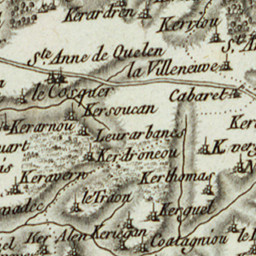 Kerardren
Kerrlou
Ste Anne de Quelen
la Villeneuve
le Cosquer
Cabaret
Kersoucan
Kerarnou
Leurarbanes
K. verg
Kerdroneou
Keravern
Kerthomas
le Traon
Kerguel
Ker Alen
Keriegan
Coatagniou